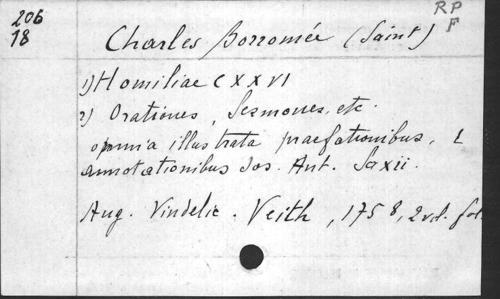 206
18
RP
F
Charles Borromée (Saint)
1) Homiliae CXXVI
2) Orationes, Sermones, etc.
omnia illustrata praefationibus, &
annotationibus Jos. Ant. Saxii.
Aug. Vindelic. Veith, 1758, 2 vol. fol.